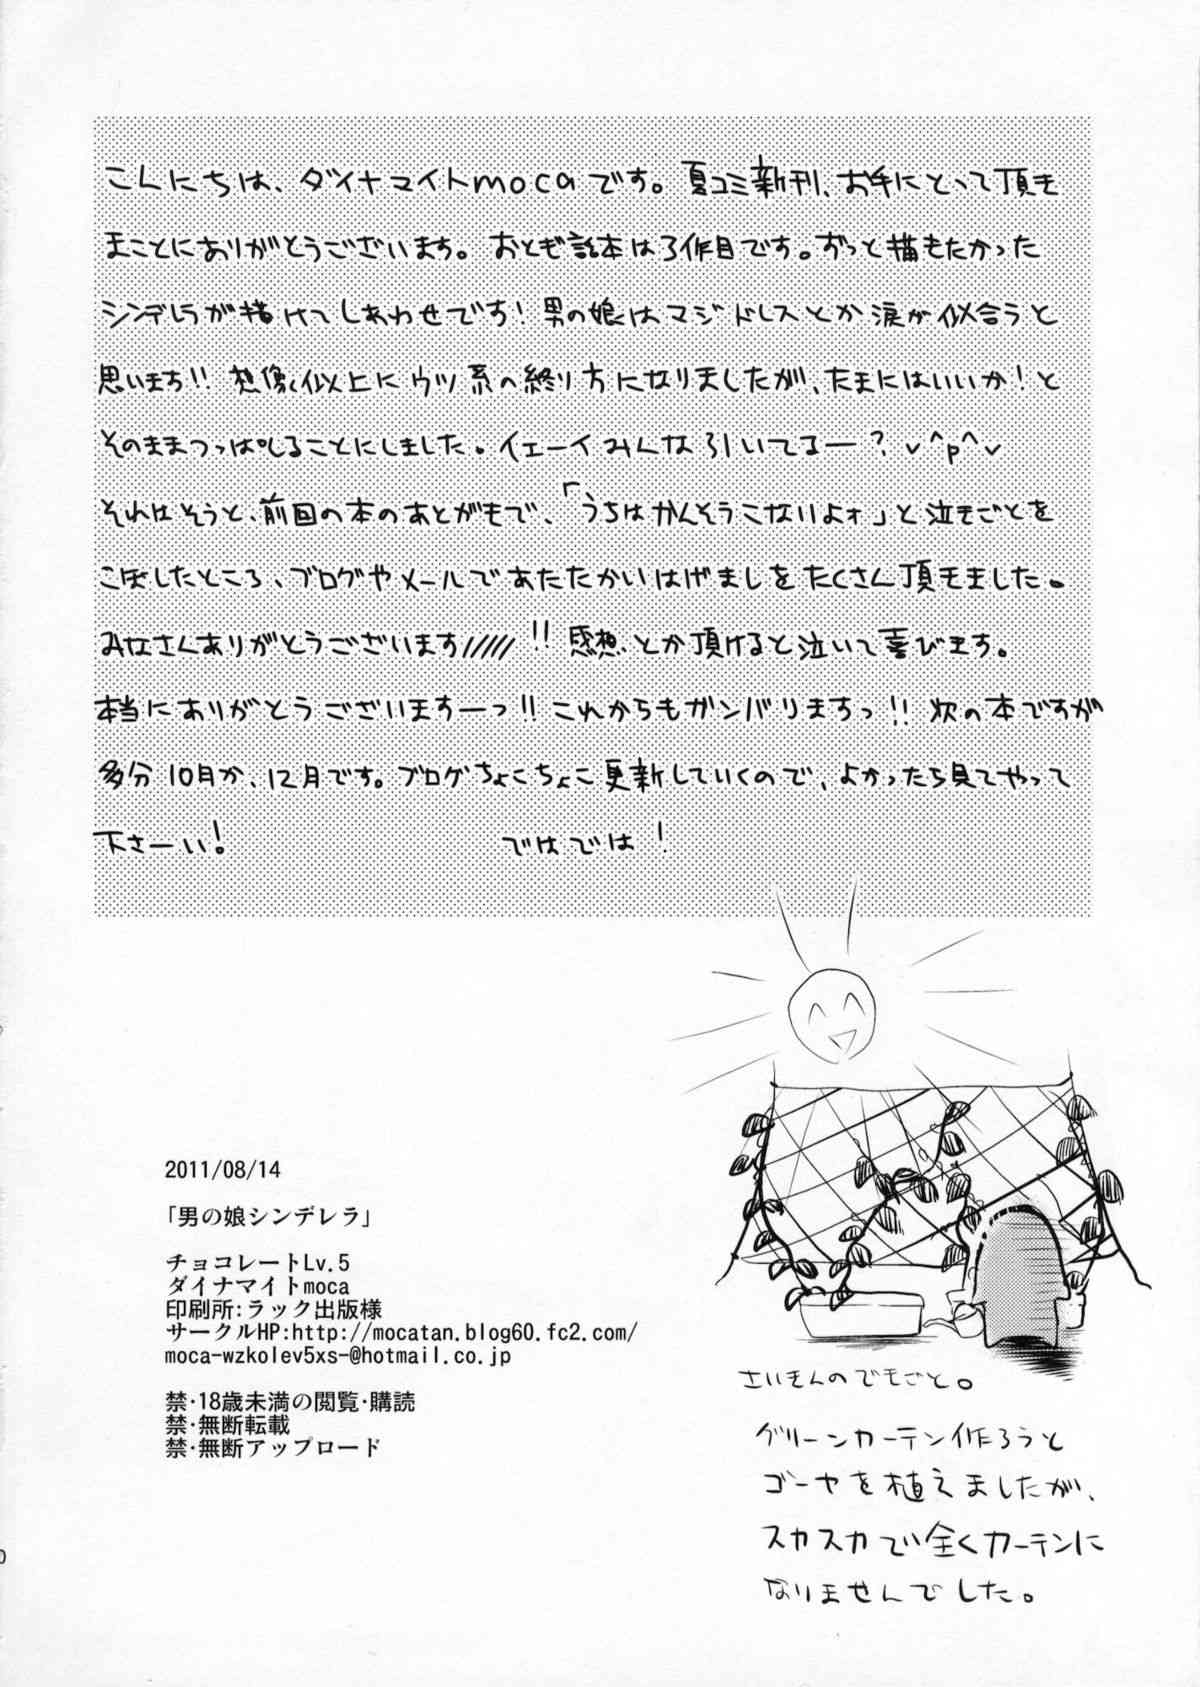 こんにちは、ダイナマイトmocaです。夏コミ新刊、お手にとって頂き
まことにありがとうございます。おとぎ話本は3作目です。ずっと描きたかった
シンデレラが描けてしあわせです!男の娘はマジドレスとか涙が似合うと
思います!!想像以上にウツ系の終り方になりましたが、たまにはいいか!と
そのままつっぱしることにしました。イェーイみんな引いてるー?v^p^v
それはそうと、前回の本のあとがきで、「うちはかんそうこないよォ」と泣きごとを
こぼしたところ、ブログやメールであたたかいはげましをたくさん頂きました。
みなさんありがとうございます/////!!感想とか頂けると泣いて喜びます。
本当にありがとうございますーっ!!これからもガンバりますっ!!次の本ですが
多分10月か、12月です。ブログちょこちょこ更新していくので、よかったら見てやって
下さーい!ではでは!
2011/08/14
「男の娘シンデレラ」
チョコレートLv.5
ダイナマイトmoca
印刷所:ラック出版様
サークルHP:http://mocatan.blog60.fc2.com/
moca-wzkolev5xs-@hotmail.co.jp
禁・18歳未満の閲覧・購読
禁・無断転載
禁・無断アップロード
さいきんのできごと。
グリーンカーテン作ろうと
ゴーヤを植えましたが、
スカスカで全くカーテンに
なりませんでした。